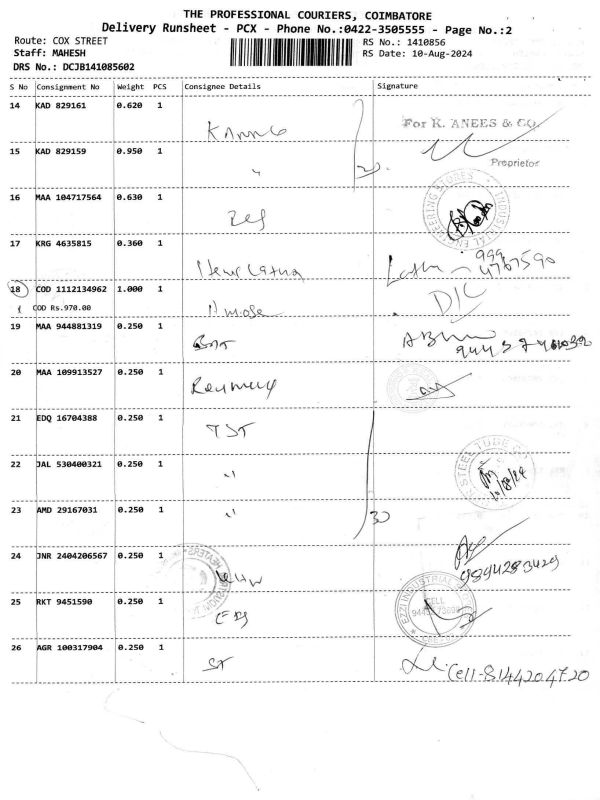 THE PROFESSIONAL COURIERS, COIMBATORE
Delivery Runsheet - PCX - Phone No.:0422-3505555 - Page No.:2
Route: COX STREET
Staff: MAHESH
DRS No.: DCJB141085602
RS No.: 1410856
RS Date: 10-Aug-2024
S No Consignment No Weight PCS Consignee Details Signature
14 KAD 829161 0.620 1
For K. ANEES & CO.
15 KAD 829159 0.950 1 "
Proprietor
16 MAA 104717564 0.630 1
ENGINEERING STORES INDUSTRIAL
17 KRG 4635815 0.360 1
18 COD 1112134962 1.000 1
COD Rs.970.00
19 MAA 944881319 0.250 1
20 MAA 109913527 0.250 1
21 EDQ 16704388 0.250 1 TST
22 JAL 530400321 0.250 1 "
STEEL TUBE CO
10/8/24
23 AMD 29167031 0.250 1 "
30
24 JNR 2404206567 0.250 1
9894283429
25 RKT 9451590 0.250 1
EZZI INDUSTRIAL
CELL
26 AGR 100317904 0.250 1 ST
Cell-8144204720